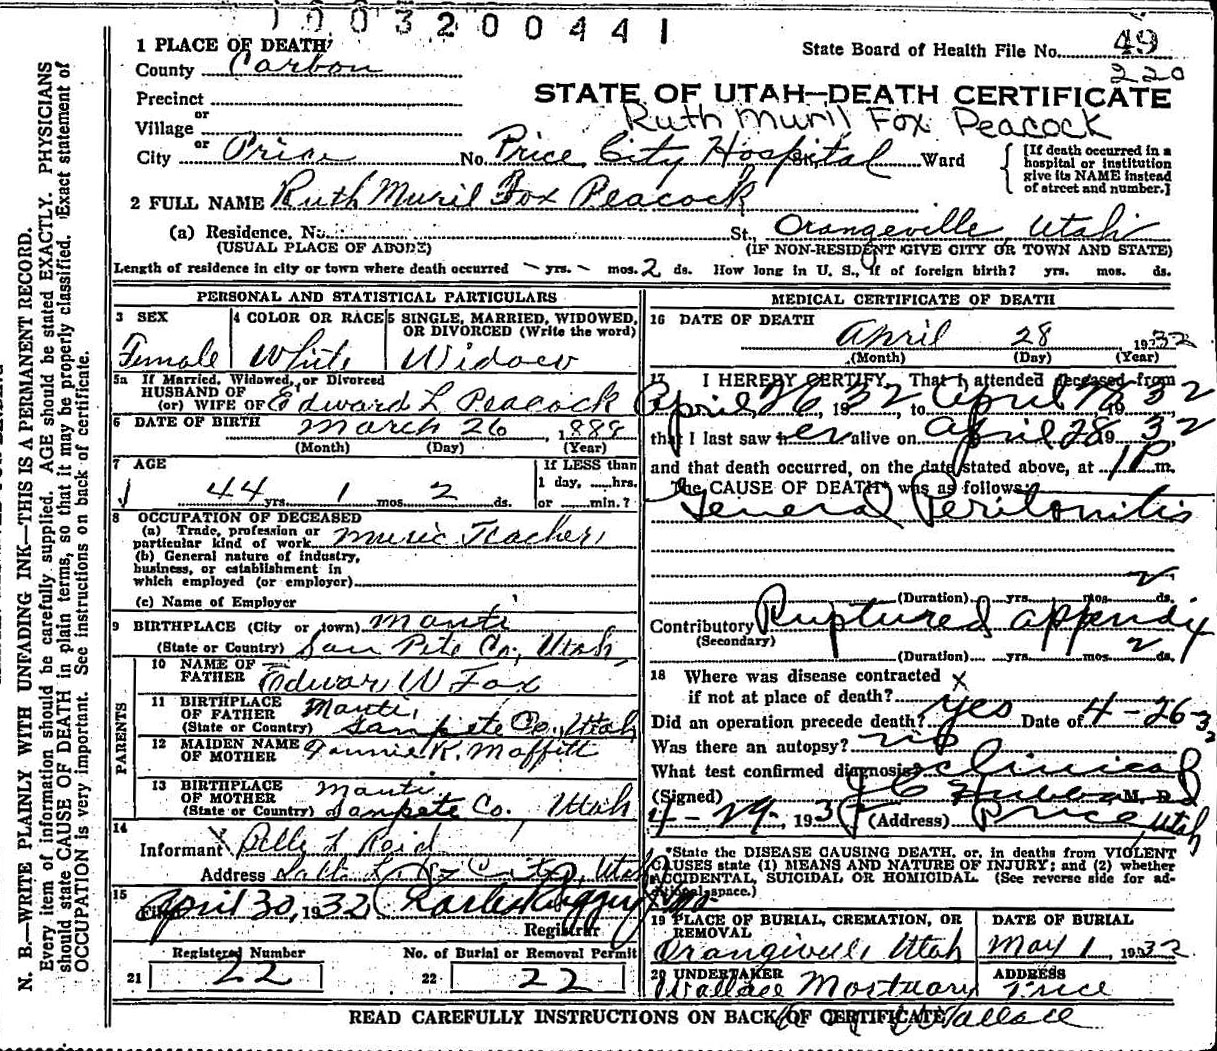 1003200441
1 PLACE OF DEATH
State Board of Health File No. 49
County Carbon
220
Precinct
STATE OF UTAH—DEATH CERTIFICATE
or
Ruth Muril Fox Peacock
Village
or
City Price No. Price City Hospital St., Ward
[If death occurred in a hospital or institution give its NAME instead of street and number.]
2 FULL NAME Ruth Muril Fox Peacock
(a) Residence. No. St., Orangeville, Utah
(USUAL PLACE OF ABODE) (IF NON-RESIDENT GIVE CITY OR TOWN AND STATE)
Length of residence in city or town where death occurred - yrs. - mos. 2 ds. How long in U. S., if of foreign birth? yrs. mos. ds.
PERSONAL AND STATISTICAL PARTICULARS
3 SEX
Female
4 COLOR OR RACE
White
5 SINGLE, MARRIED, WIDOWED, OR DIVORCED (Write the word)
Widow
5a If Married, Widowed, or Divorced
HUSBAND OF
(or) WIFE OF Edward L Peacock
6 DATE OF BIRTH March 26, 1888
(Month) (Day) (Year)
7 AGE
44 yrs. 1 mos. 2 ds.
If LESS than
1 day, hrs.
or min.?
8 OCCUPATION OF DECEASED
(a) Trade, profession or
particular kind of work Music Teacher
(b) General nature of industry,
business, or establishment in
which employed (or employer)
(c) Name of Employer
9 BIRTHPLACE (City or town) Manti
(State or Country) San Pete Co., Utah
PARENTS
10 NAME OF
FATHER Edward W Fox
11 BIRTHPLACE
OF FATHER Manti,
(State or Country) Sanpete Co., Utah
12 MAIDEN NAME
OF MOTHER Fannie K. Moffitt
13 BIRTHPLACE
OF MOTHER Manti
(State or Country) Sanpete Co. Utah
14
Informant Belle F Reid
Address Salt Lake City, Utah
15
Filed April 30, 1932
Registrar
Registered Number
21 22
No. of Burial or Removal Permit
22 22
MEDICAL CERTIFICATE OF DEATH
16 DATE OF DEATH
April 28 1932
(Month) (Day) (Year)
17 I HEREBY CERTIFY, That I attended deceased from
April 26 1932, to April 28 1932
that I last saw her alive on April 28 1932
and that death occurred, on the date stated above, at 1 P m.
The CAUSE OF DEATH* was as follows:
General Peritonitis
2
(Duration) yrs. mos. ds.
Contributory Ruptured appendix
(Secondary)
2
(Duration) yrs. mos. ds.
18 Where was disease contracted
if not at place of death? x
Did an operation precede death? yes Date of 4-26-32
Was there an autopsy? no
What test confirmed diagnosis? Clinical
(Signed) J C Hubbard M. D.
4-29, 1932 (Address) Price, Utah
*State the DISEASE CAUSING DEATH, or, in deaths from VIOLENT
CAUSES state (1) MEANS AND NATURE OF INJURY; and (2) whether
ACCIDENTAL, SUICIDAL OR HOMICIDAL. (See reverse side for additional space.)
19 PLACE OF BURIAL, CREMATION, OR
REMOVAL
Orangeville, Utah
DATE OF BURIAL
May 1, 1932
20 UNDERTAKER
Wallace Mortuary
ADDRESS
Price
Wallace
READ CAREFULLY INSTRUCTIONS ON BACK OF CERTIFICATE
N. B.—WRITE PLAINLY WITH UNFADING INK—THIS IS A PERMANENT RECORD.
Every item of information should be carefully supplied. AGE should be stated EXACTLY. PHYSICIANS
should state CAUSE OF DEATH in plain terms, so that it may be properly classified. Exact statement of
OCCUPATION is very important. See instructions on back of certificate.